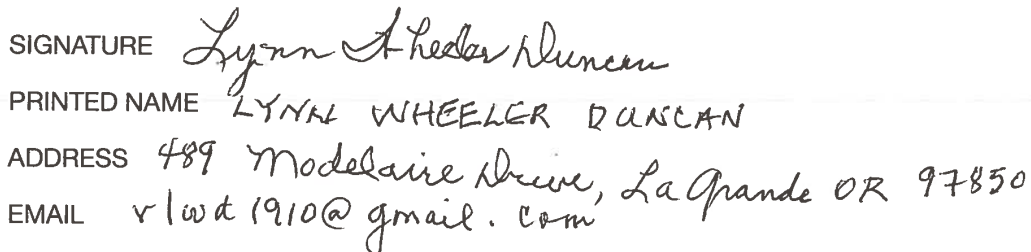 SIGNATURE Lynn Wheeler Duncan
PRINTED NAME LYNN WHEELER DUNCAN
ADDRESS 489 Modelaire Drive, La Grande OR 97850
EMAIL vlwd1910@gmail.com